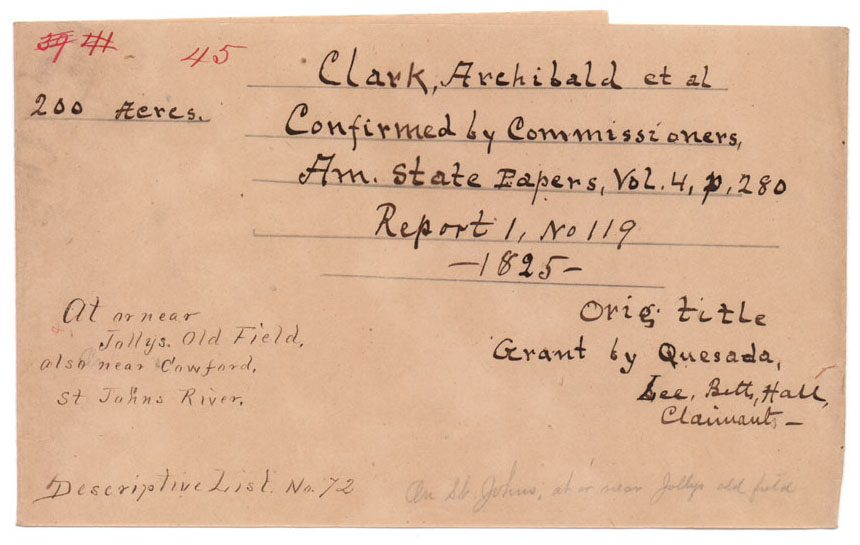 39 41
45
200 Acres.
Clark, Archibald et al
Confirmed by Commissioners,
Am. State Papers, Vol. 4, p. 280
Report 1, No 119
-1825-
At or near
Jollys. Old Field,
also near Cowford,
St Johns River.
Orig. title
Grant by Quesada,
Lee, Betts, Hall,
Claimants -
Descriptive List. No. 72
On St. Johns, at or near Jollys old field